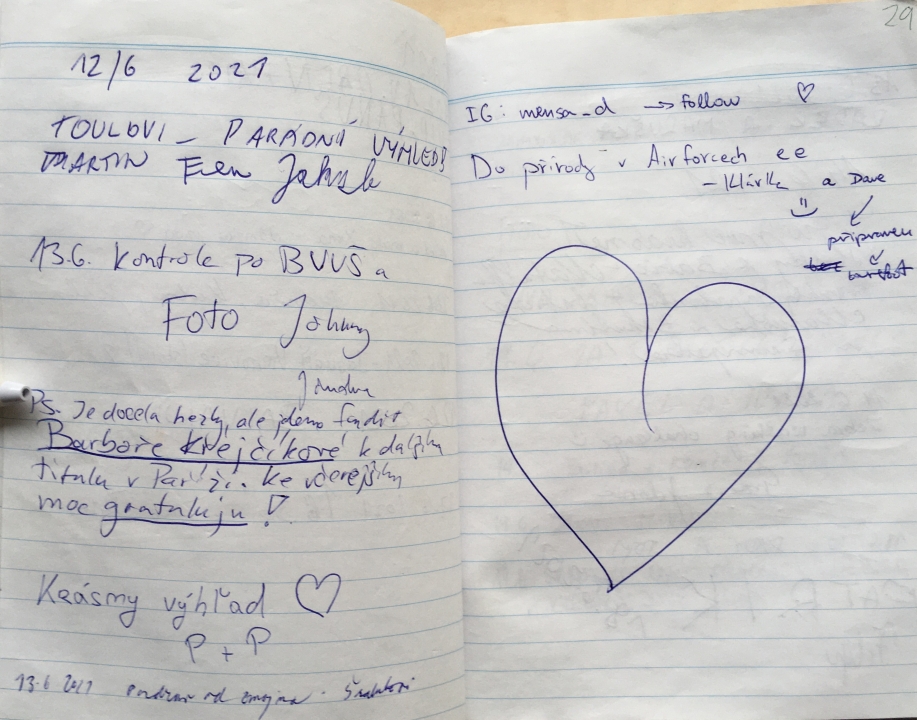 12/6 2021
TOULOVI – PARÁDNÍ VÝHLED!
MARTIN Jakub
13.6. kontrola po BUUŠ a
Foto Johnny
Jindra
Ps. Je docela hezky, ale jdeme fandit
Barboře Krejčíkové k dalšímu
titulu v Paříži. Ke včerejšímu
moc gratuluju!
Krásny výhľad ♡
P + P
13.6 2021 Pozdrav od
29
IG: mensa_d → follow ♡
Do přírody v Airforcech ee
– Klárka a Dave
připraven
barefoot